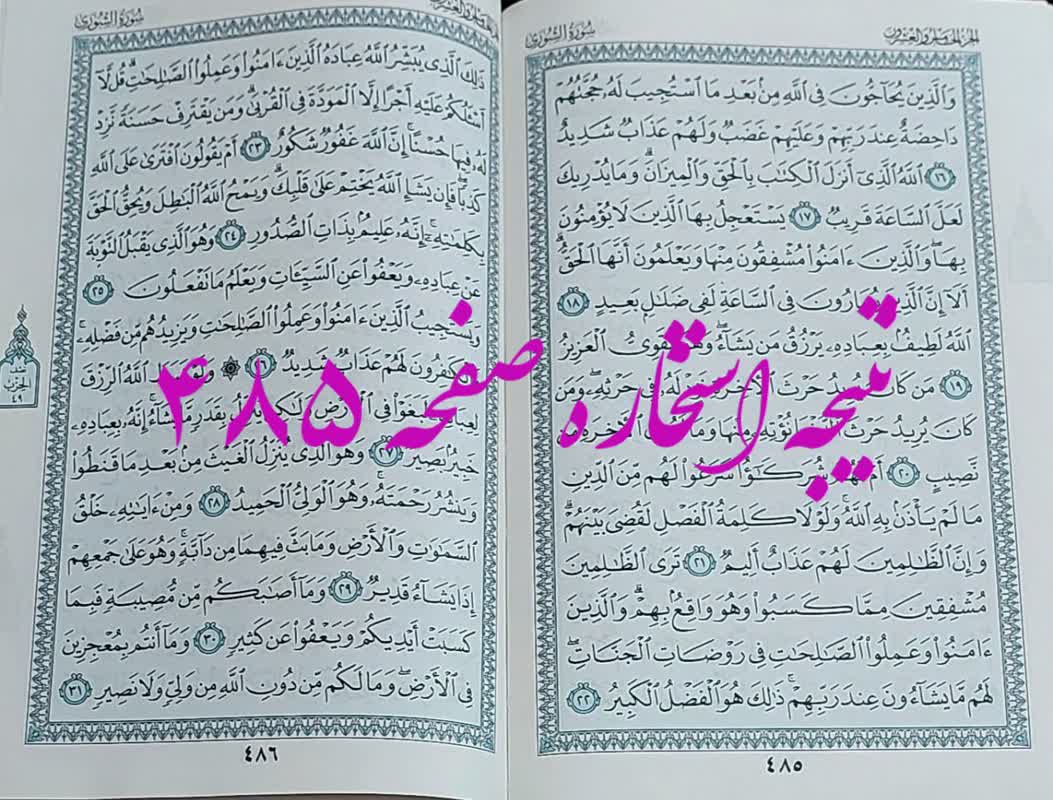 الجزء الخامس والعشرون
سورة الشورى
وَالَّذِينَ يُحَآجُّونَ فِى ٱللَّهِ مِنۢ بَعْدِ مَا ٱسْتُجِيبَ لَهُۥ حُجَّتُهُمْ
دَاحِضَةٌ عِندَ رَبِّهِمْ وَعَلَيْهِمْ غَضَبٌ وَلَهُمْ عَذَابٌ شَدِيدٌ
١٦ ٱللَّهُ ٱلَّذِىٓ أَنزَلَ ٱلْكِتَٰبَ بِٱلْحَقِّ وَٱلْمِيزَانَ ۗ وَمَا يُدْرِيكَ
لَعَلَّ ٱلسَّاعَةَ قَرِيبٌ ١٧ يَسْتَعْجِلُ بِهَا ٱلَّذِينَ لَا يُؤْمِنُونَ
بِهَا ۖ وَٱلَّذِينَ ءَامَنُوا۟ مُشْفِقُونَ مِنْهَا وَيَعْلَمُونَ أَنَّهَا ٱلْحَقُّ ۗ
أَلَآ إِنَّ ٱلَّذِينَ يُمَارُونَ فِى ٱلسَّاعَةِ لَفِى ضَلَٰلٍۭ بَعِيدٍ ١٨
ٱللَّهُ لَطِيفٌۢ بِعِبَادِهِۦ يَرْزُقُ مَن يَشَآءُ ۖ وَهُوَ ٱلْقَوِىُّ ٱلْعَزِيزُ
١٩ مَن كَانَ يُرِيدُ حَرْثَ ٱلْءَاخِرَةِ نَزِدْ لَهُۥ فِى حَرْثِهِۦ ۖ وَمَن
كَانَ يُرِيدُ حَرْثَ ٱلدُّنْيَا نُؤْتِهِۦ مِنْهَا وَمَا لَهُۥ فِى ٱلْءَاخِرَةِ مِن
نَّصِيبٍ ٢٠ أَمْ لَهُمْ شُرَكَٰٓؤُا۟ شَرَعُوا۟ لَهُم مِّنَ ٱلدِّينِ
مَا لَمْ يَأْذَنۢ بِهِ ٱللَّهُ ۚ وَلَوْلَا كَلِمَةُ ٱلْفَصْلِ لَقُضِىَ بَيْنَهُمْ ۗ
وَإِنَّ ٱلظَّٰلِمِينَ لَهُمْ عَذَابٌ أَلِيمٌ ٢١ تَرَى ٱلظَّٰلِمِينَ
مُشْفِقِينَ مِمَّا كَسَبُوا۟ وَهُوَ وَاقِعٌۢ بِهِمْ ۗ وَٱلَّذِينَ
ءَامَنُوا۟ وَعَمِلُوا۟ ٱلصَّٰلِحَٰتِ فِى رَوْضَاتِ ٱلْجَنَّاتِ ۖ
لَهُم مَّا يَشَآءُونَ عِندَ رَبِّهِمْ ۚ ذَٰلِكَ هُوَ ٱلْفَضْلُ ٱلْكَبِيرُ ٢٢
٤٨٥
سورة الشورى
ذَٰلِكَ ٱلَّذِى يُبَشِّرُ ٱللَّهُ عِبَادَهُ ٱلَّذِينَ ءَامَنُوا۟ وَعَمِلُوا۟ ٱلصَّٰلِحَٰتِ ۗ قُل لَّآ
أَسْـَٔلُكُمْ عَلَيْهِ أَجْرًا إِلَّا ٱلْمَوَدَّةَ فِى ٱلْقُرْبَىٰ ۗ وَمَن يَقْتَرِفْ حَسَنَةً نَّزِدْ
لَهُۥ فِيهَا حُسْنًا ۚ إِنَّ ٱللَّهَ غَفُورٌ شَكُورٌ ٢٣ أَمْ يَقُولُونَ ٱفْتَرَىٰ عَلَى ٱللَّهِ
كَذِبًا ۖ فَإِن يَشَإِ ٱللَّهُ يَخْتِمْ عَلَىٰ قَلْبِكَ ۗ وَيَمْحُ ٱللَّهُ ٱلْبَٰطِلَ وَيُحِقُّ ٱلْحَقَّ
بِكَلِمَٰتِهِۦٓ ۚ إِنَّهُۥ عَلِيمٌۢ بِذَاتِ ٱلصُّدُورِ ٢٤ وَهُوَ ٱلَّذِى يَقْبَلُ ٱلتَّوْبَةَ
عَنْ عِبَادِهِۦ وَيَعْفُوا۟ عَنِ ٱلسَّيِّـَٔاتِ وَيَعْلَمُ مَا تَفْعَلُونَ ٢٥
وَيَسْتَجِيبُ ٱلَّذِينَ ءَامَنُوا۟ وَعَمِلُوا۟ ٱلصَّٰلِحَٰتِ وَيَزِيدُهُم مِّن فَضْلِهِۦ ۚ
وَٱلْكَٰفِرُونَ لَهُمْ عَذَابٌ شَدِيدٌ ٢٦ ۞ وَلَوْ بَسَطَ ٱللَّهُ ٱلرِّزْقَ
لِعِبَادِهِۦ لَبَغَوْا۟ فِى ٱلْأَرْضِ وَلَٰكِن يُنَزِّلُ بِقَدَرٍ مَّا يَشَآءُ ۚ إِنَّهُۥ بِعِبَادِهِۦ
خَبِيرٌۢ بَصِيرٌ ٢٧ وَهُوَ ٱلَّذِى يُنَزِّلُ ٱلْغَيْثَ مِنۢ بَعْدِ مَا قَنَطُوا۟
وَيَنشُرُ رَحْمَتَهُۥ ۚ وَهُوَ ٱلْوَلِىُّ ٱلْحَمِيدُ ٢٨ وَمِنْ ءَايَٰتِهِۦ خَلْقُ
ٱلسَّمَٰوَٰتِ وَٱلْأَرْضِ وَمَا بَثَّ فِيهِمَا مِن دَآبَّةٍ ۚ وَهُوَ عَلَىٰ جَمْعِهِمْ
إِذَا يَشَآءُ قَدِيرٌ ٢٩ وَمَآ أَصَٰبَكُم مِّن مُّصِيبَةٍ فَبِمَا
كَسَبَتْ أَيْدِيكُمْ وَيَعْفُوا۟ عَن كَثِيرٍ ٣٠ وَمَآ أَنتُم بِمُعْجِزِينَ
فِى ٱلْأَرْضِ ۖ وَمَا لَكُم مِّن دُونِ ٱللَّهِ مِن وَلِىٍّ وَلَا نَصِيرٍ ٣١
٤٨٦
الحزب
٤٩
نتیجه استخاره صفحه ۴۸۵